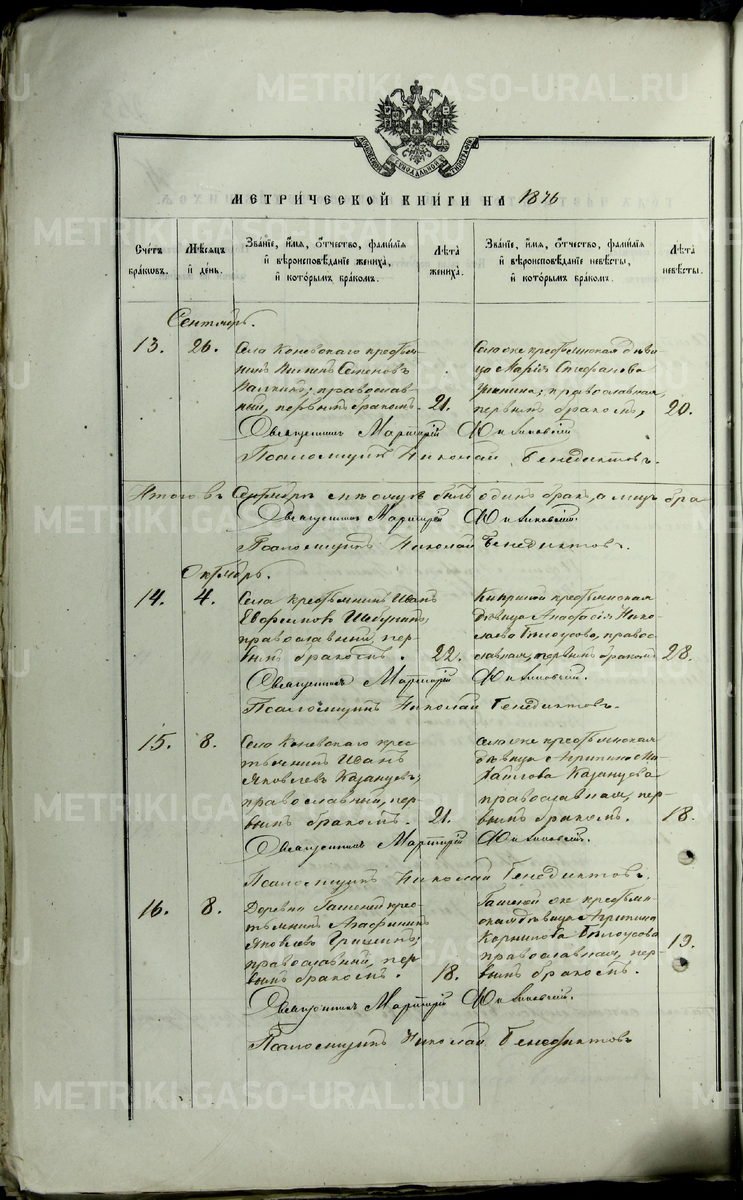 METRIKI.GASO-URAL.RU
МОСКОВСКОЙ СИНОДАЛЬНОЙ ТИПОГРАФІИ
МЕТРИЧЕСКОЙ КНИГИ НА 1876
Счетъ браковъ.
Мѣсяцъ и день.
Званіе, имя, отчество, фамилія и вѣроисповѣданіе жениха, и которымъ бракомъ.
Лѣта жениха.
Званіе, имя, отчество, фамилія и вѣроисповѣданіе невѣсты, и которымъ бракомъ.
Лѣта невѣсты.
Сентябрь.
13. 26.
Села Коневскаго крестья-
нинъ Семеновъ
православ-
ный, первымъ бракомъ. 21.
Село же крестьянская дѣви-
ца Марія Стефанова
православная,
первымъ бракомъ, 20.
Священникъ Мартирій
Псаломщикъ Николай Бенедиктовъ.
Итого въ Сентябрѣ мѣсяцѣ былъ одинъ бракъ, а лицъ два
Священникъ Мартирій
Псаломщикъ Николай Бенедиктовъ.
Октябрь.
14. 4.
Села крестьянинъ Иванъ
Евфимовъ
православный, пер-
вымъ бракомъ. 22.
крестьянская
дѣвица Анастасія Нико-
лаева Бѣлоусова, право-
славная, первымъ бракомъ 28.
Священникъ Мартирій
Псаломщикъ Николай Бенедиктовъ.
15. 8.
Села Коневскаго крес-
тьянинъ Иванъ
Яковлевъ Казанцевъ;
православный, пер-
вымъ бракомъ. 21.
Село же крестьянская
дѣвица Агрипина Ми-
хайлова Казанцева
православная, пер-
вымъ бракомъ. 18.
Священникъ Мартирій
Псаломщикъ Николай Бенедиктовъ.
16. 8.
Деревни Гашеней крес-
тьянинъ
Яковлевъ Гришинъ;
православный, пер-
вымъ бракомъ. 18.
Гашеней же крестьян-
ская дѣвица Агрипина
Корнилова Бѣлоусова
православная, пер-
вымъ бракомъ. 19.
Священникъ Мартирій
Псаломщикъ Николай Бенедиктовъ